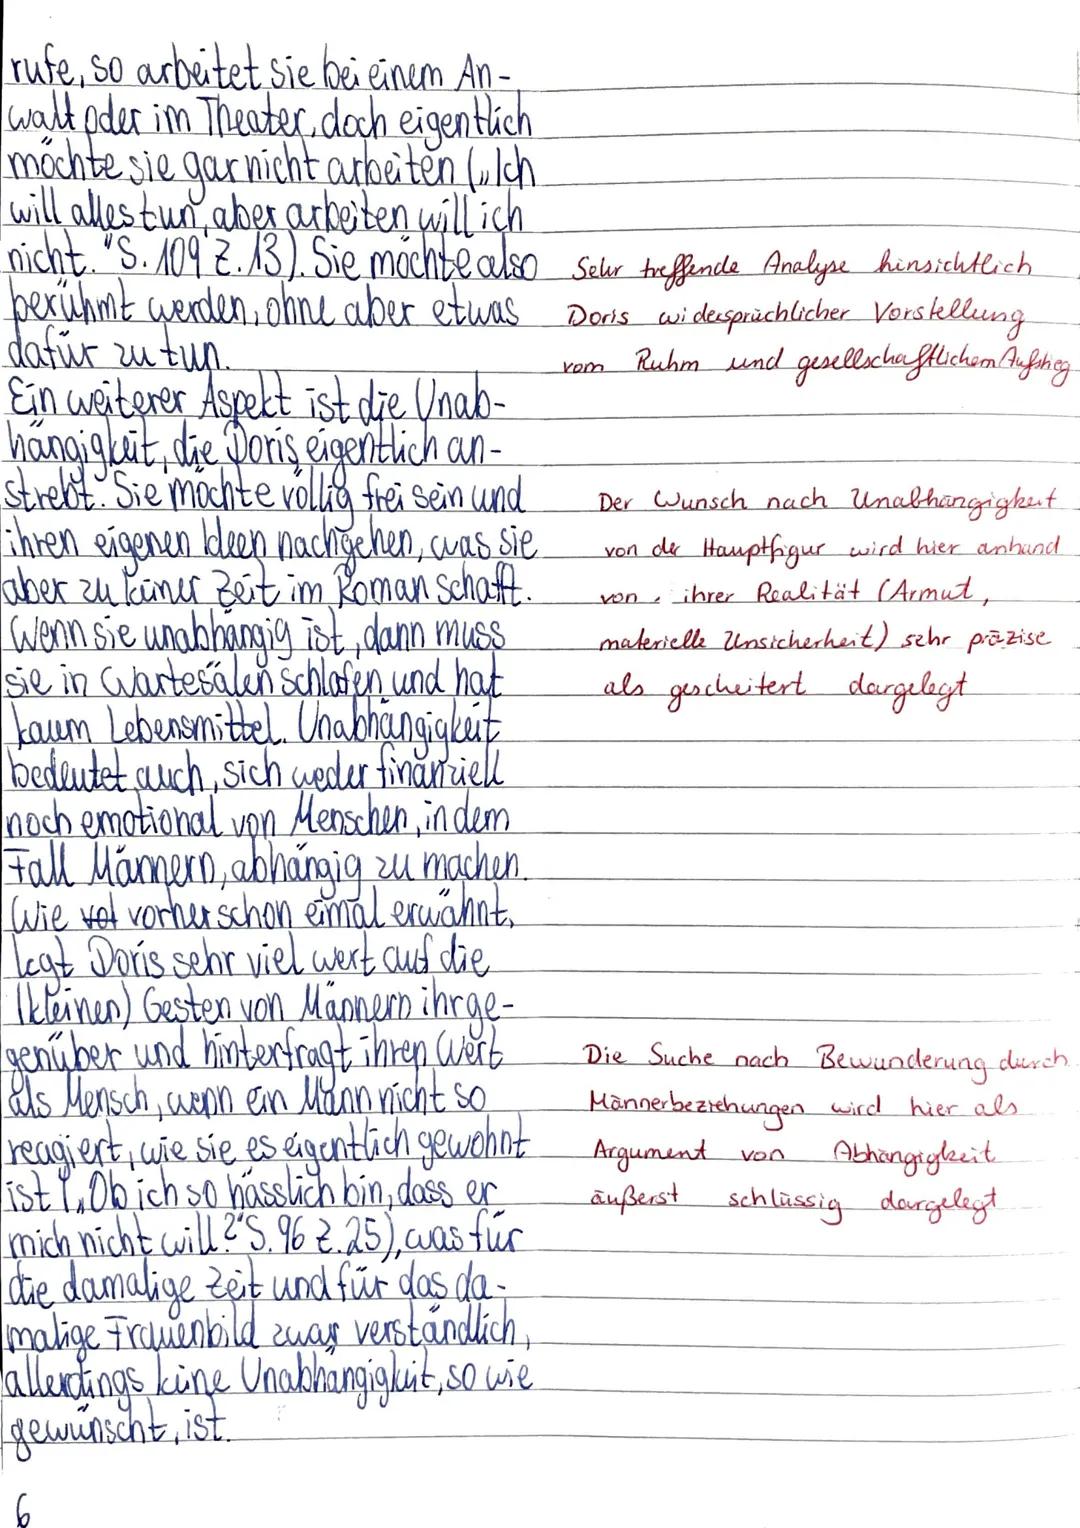 rufe, so arbeitet sie bei einem An-
walt oder im Theater, doch eigentlich
möchte sie gar nicht arbeiten („Ich
will alles tun, aber arbeiten will ich
nicht." S. 109 Z. 13). Sie möchte also
berühmt werden, ohne aber etwas
dafür zu tun.
Sehr treffende Analyse hinsichtlich
Doris widersprüchlicher Vorstellung
vom Ruhm und gesellschaftlichem Aufstieg
Ein weiterer Aspekt ist die Unab-
hängigkeit, die Doris eigentlich an-
strebt. Sie möchte völlig frei sein und
ihren eigenen Ideen nachgehen, was sie
aber zu keiner Zeit im Roman schafft.
Wenn sie unabhängig ist, dann muss
sie in Wartesälen schlafen und hat
kaum Lebensmittel. Unabhängigkeit
bedeutet auch, sich weder finanziell
noch emotional von Menschen, in dem
Fall Männern, abhängig zu machen.
Der Wunsch nach Unabhängigkeit
von der Hauptfigur wird hier anhand
von ihrer Realität (Armut,
materielle Unsicherheit) sehr präzise
als gescheitert dargelegt
Wie vorher schon eimal erwähnt,
legt Doris sehr viel wert auf die
(kleinen) Gesten von Männern ihr ge-
genüber und hinterfragt ihren Wert
als Mensch, wenn ein Mann nicht so
reagiert, wie sie es eigentlich gewohnt
ist („Ob ich so hässlich bin, dass er
mich nicht will?" S. 96 Z. 25), was für
die damalige Zeit und für das da-
malige Frauenbild zwar verständlich,
allerdings keine Unabhängigkeit, so wie
gewünscht, ist.
Die Suche nach Bewunderung durch
Männerbeziehungen wird hier als
Argument von Abhängigkeit
äußerst schlüssig dargelegt
6